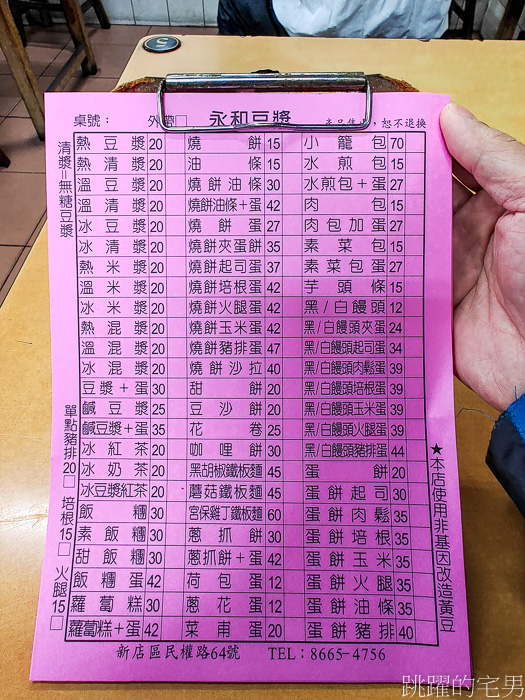 桌號： 外帶□ 永和豆漿 本品售出，恕不退換
清漿=無糖豆漿
熱豆漿 20 燒餅 15 小籠包 70
熱清漿 20 油條 15 水煎包 15
溫豆漿 20 燒餅油條 30 水煎包+蛋 27
溫清漿 20 燒餅油條+蛋 42 肉包 15
冰豆漿 20 燒餅蛋 27 肉包加蛋 27
冰清漿 20 燒餅夾蛋餅 35 素菜包 15
熱米漿 20 燒餅起司蛋 37 素菜包蛋 27
溫米漿 20 燒餅培根蛋 42 芋頭條 15
冰米漿 20 燒餅火腿蛋 42 黑/白饅頭 12
熱混漿 20 燒餅玉米蛋 42 黑/白饅頭夾蛋 24
溫混漿 20 燒餅豬排蛋 47 黑/白饅頭起司蛋 34
冰混漿 20 燒餅沙拉 40 黑/白饅頭肉鬆蛋 39
豆漿+蛋 30 甜餅 20 黑/白饅頭培根蛋 39
鹹豆漿 25 豆沙餅 20 黑/白饅頭玉米蛋 39
鹹豆漿+蛋 35 花卷 25 黑/白饅頭火腿蛋 39
冰紅茶 20 咖哩餅 30 黑/白饅頭豬排蛋 44
冰奶茶 20 黑胡椒鐵板麵 45 蛋餅 20
冰豆漿紅茶 20 蘑菇鐵板麵 45 蛋餅起司 30
飯糰 30 宮保雞丁鐵板麵 60 蛋餅肉鬆 35
素飯糰 30 蔥抓餅 30 蛋餅培根 35
甜飯糰 30 蔥抓餅+蛋 42 蛋餅玉米 35
飯糰蛋 42 荷包蛋 12 蛋餅火腿 35
蘿蔔糕 30 蔥花蛋 12 蛋餅油條 35
蘿蔔糕+蛋 42 菜甫蛋 20 蛋餅豬排 40
單點豬排20□ 培根15□ 火腿15□
★本店使用非基因改造黃豆
新店區民權路64號 TEL：8665-4756
跳躍的宅男